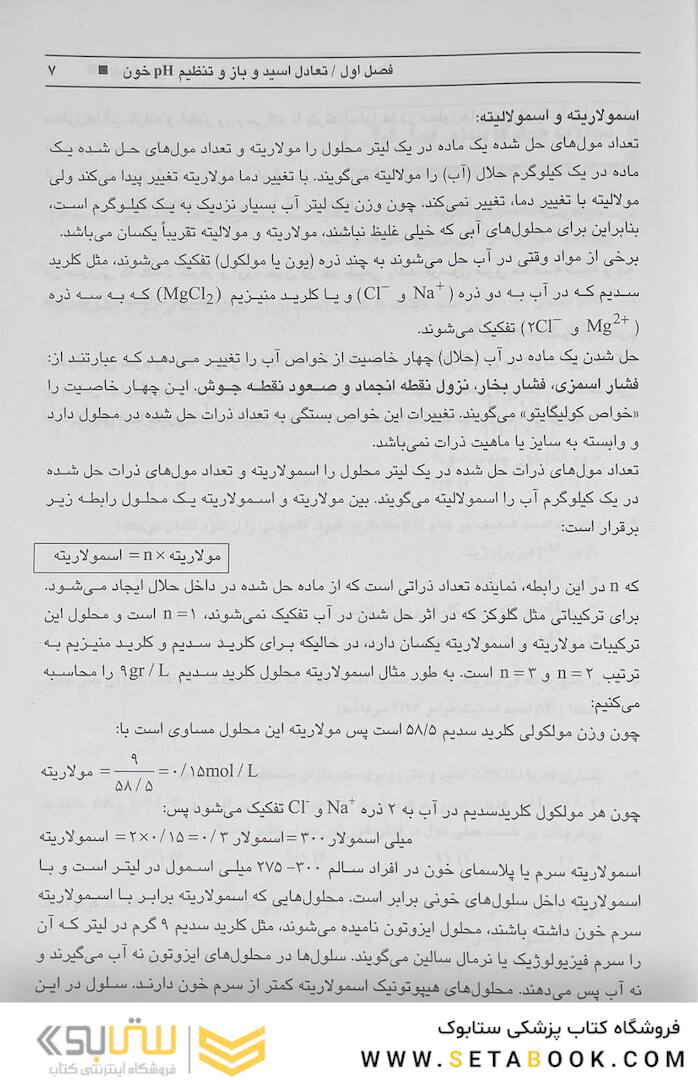 فصل اول / تعادل اسید و باز و تنظیم pH خون ■ ۷
اسمولاریته و اسمولالیته:
تعداد مول‌های حل شده یک ماده در یک لیتر محلول را مولاریته و تعداد مول‌های حل شده یک
ماده در یک کیلوگرم حلال (آب) را مولالیته می‌گویند. با تغییر دما مولاریته تغییر پیدا می‌کند ولی
مولالیته با تغییر دما، تغییر نمی‌کند. چون وزن یک لیتر آب بسیار نزدیک به یک کیلوگرم است،
بنابراین برای محلول‌های آبی که خیلی غلیظ نباشند، مولاریته و مولالیته تقریباً یکسان می‌باشد.
برخی از مواد وقتی در آب حل می‌شوند به چند ذره (یون یا مولکول) تفکیک می‌شوند، مثل کلرید
سدیم که در آب به دو ذره (Na⁺ و Cl⁻) و یا کلرید منیزیم (MgCl₂) که به سه ذره
(Mg²⁺ و ۲Cl⁻) تفکیک می‌شوند.
حل شدن یک ماده در آب (حلال) چهار خاصیت از خواص آب را تغییر می‌دهد که عبارتند از:
فشار اسمزی، فشار بخار، نزول نقطه انجماد و صعود نقطه جوش. این چهار خاصیت را
«خواص کولیگایتو» می‌گویند. تغییرات این خواص بستگی به تعداد ذرات حل شده در محلول دارد
و وابسته به سایز یا ماهیت ذرات نمی‌باشد.
تعداد مول‌های ذرات حل شده در یک لیتر محلول را اسمولاریته و تعداد مول‌های ذرات حل شده
در یک کیلوگرم آب را اسمولالیته می‌گویند. بین مولاریته و اسمولاریته یک محلول رابطه زیر
برقرار است:
مولاریته × n = اسمولاریته
که n در این رابطه، نماینده تعداد ذراتی است که از ماده حل شده در داخل حلال ایجاد می‌شود.
برای ترکیباتی مثل گلوکز که در اثر حل شدن در آب تفکیک نمی‌شوند، n = ۱ است و محلول این
ترکیبات مولاریته و اسمولاریته یکسان دارد، در حالیکه برای کلرید سدیم و کلرید منیزیم به
ترتیب n = ۲ و n = ۳ است. به طور مثال اسمولاریته محلول کلرید سدیم ۹gr / L را محاسبه
می‌کنیم:
چون وزن مولکولی کلرید سدیم ۵۸/۵ است پس مولاریته این محلول مساوی است با:
مولاریته = ۹ / ۵۸/۵ = ۰/۱۵mol / L
چون هر مولکول کلریدسدیم در آب به ۲ ذره Na⁺ و Cl⁻ تفکیک می‌شود پس:
میلی اسمولار ۳۰۰ = اسمولار ۰/۳ = ۲×۰/۱۵ = اسمولاریته
اسمولاریته سرم یا پلاسمای خون در افراد سالم ۳۰۰- ۲۷۵ میلی اسمول در لیتر است و با
اسمولاریته داخل سلول‌های خونی برابر است. محلول‌هایی که اسمولاریته برابر با اسمولاریته
سرم خون داشته باشند، محلول ایزوتون نامیده می‌شوند، مثل کلرید سدیم ۹ گرم در لیتر که آن
را سرم فیزیولوژیک یا نرمال سالین می‌گویند. سلول‌ها در محلول‌های ایزوتون نه آب می‌گیرند و
نه آب پس می‌دهند. محلول‌های هیپوتونیک اسمولاریته کمتر از سرم خون دارند. سلول در این
فروشگاه کتاب پزشکی ستابوک
WWW.SETABOOK.COM
ستابوک
فروشگاه اینترنتی کتاب